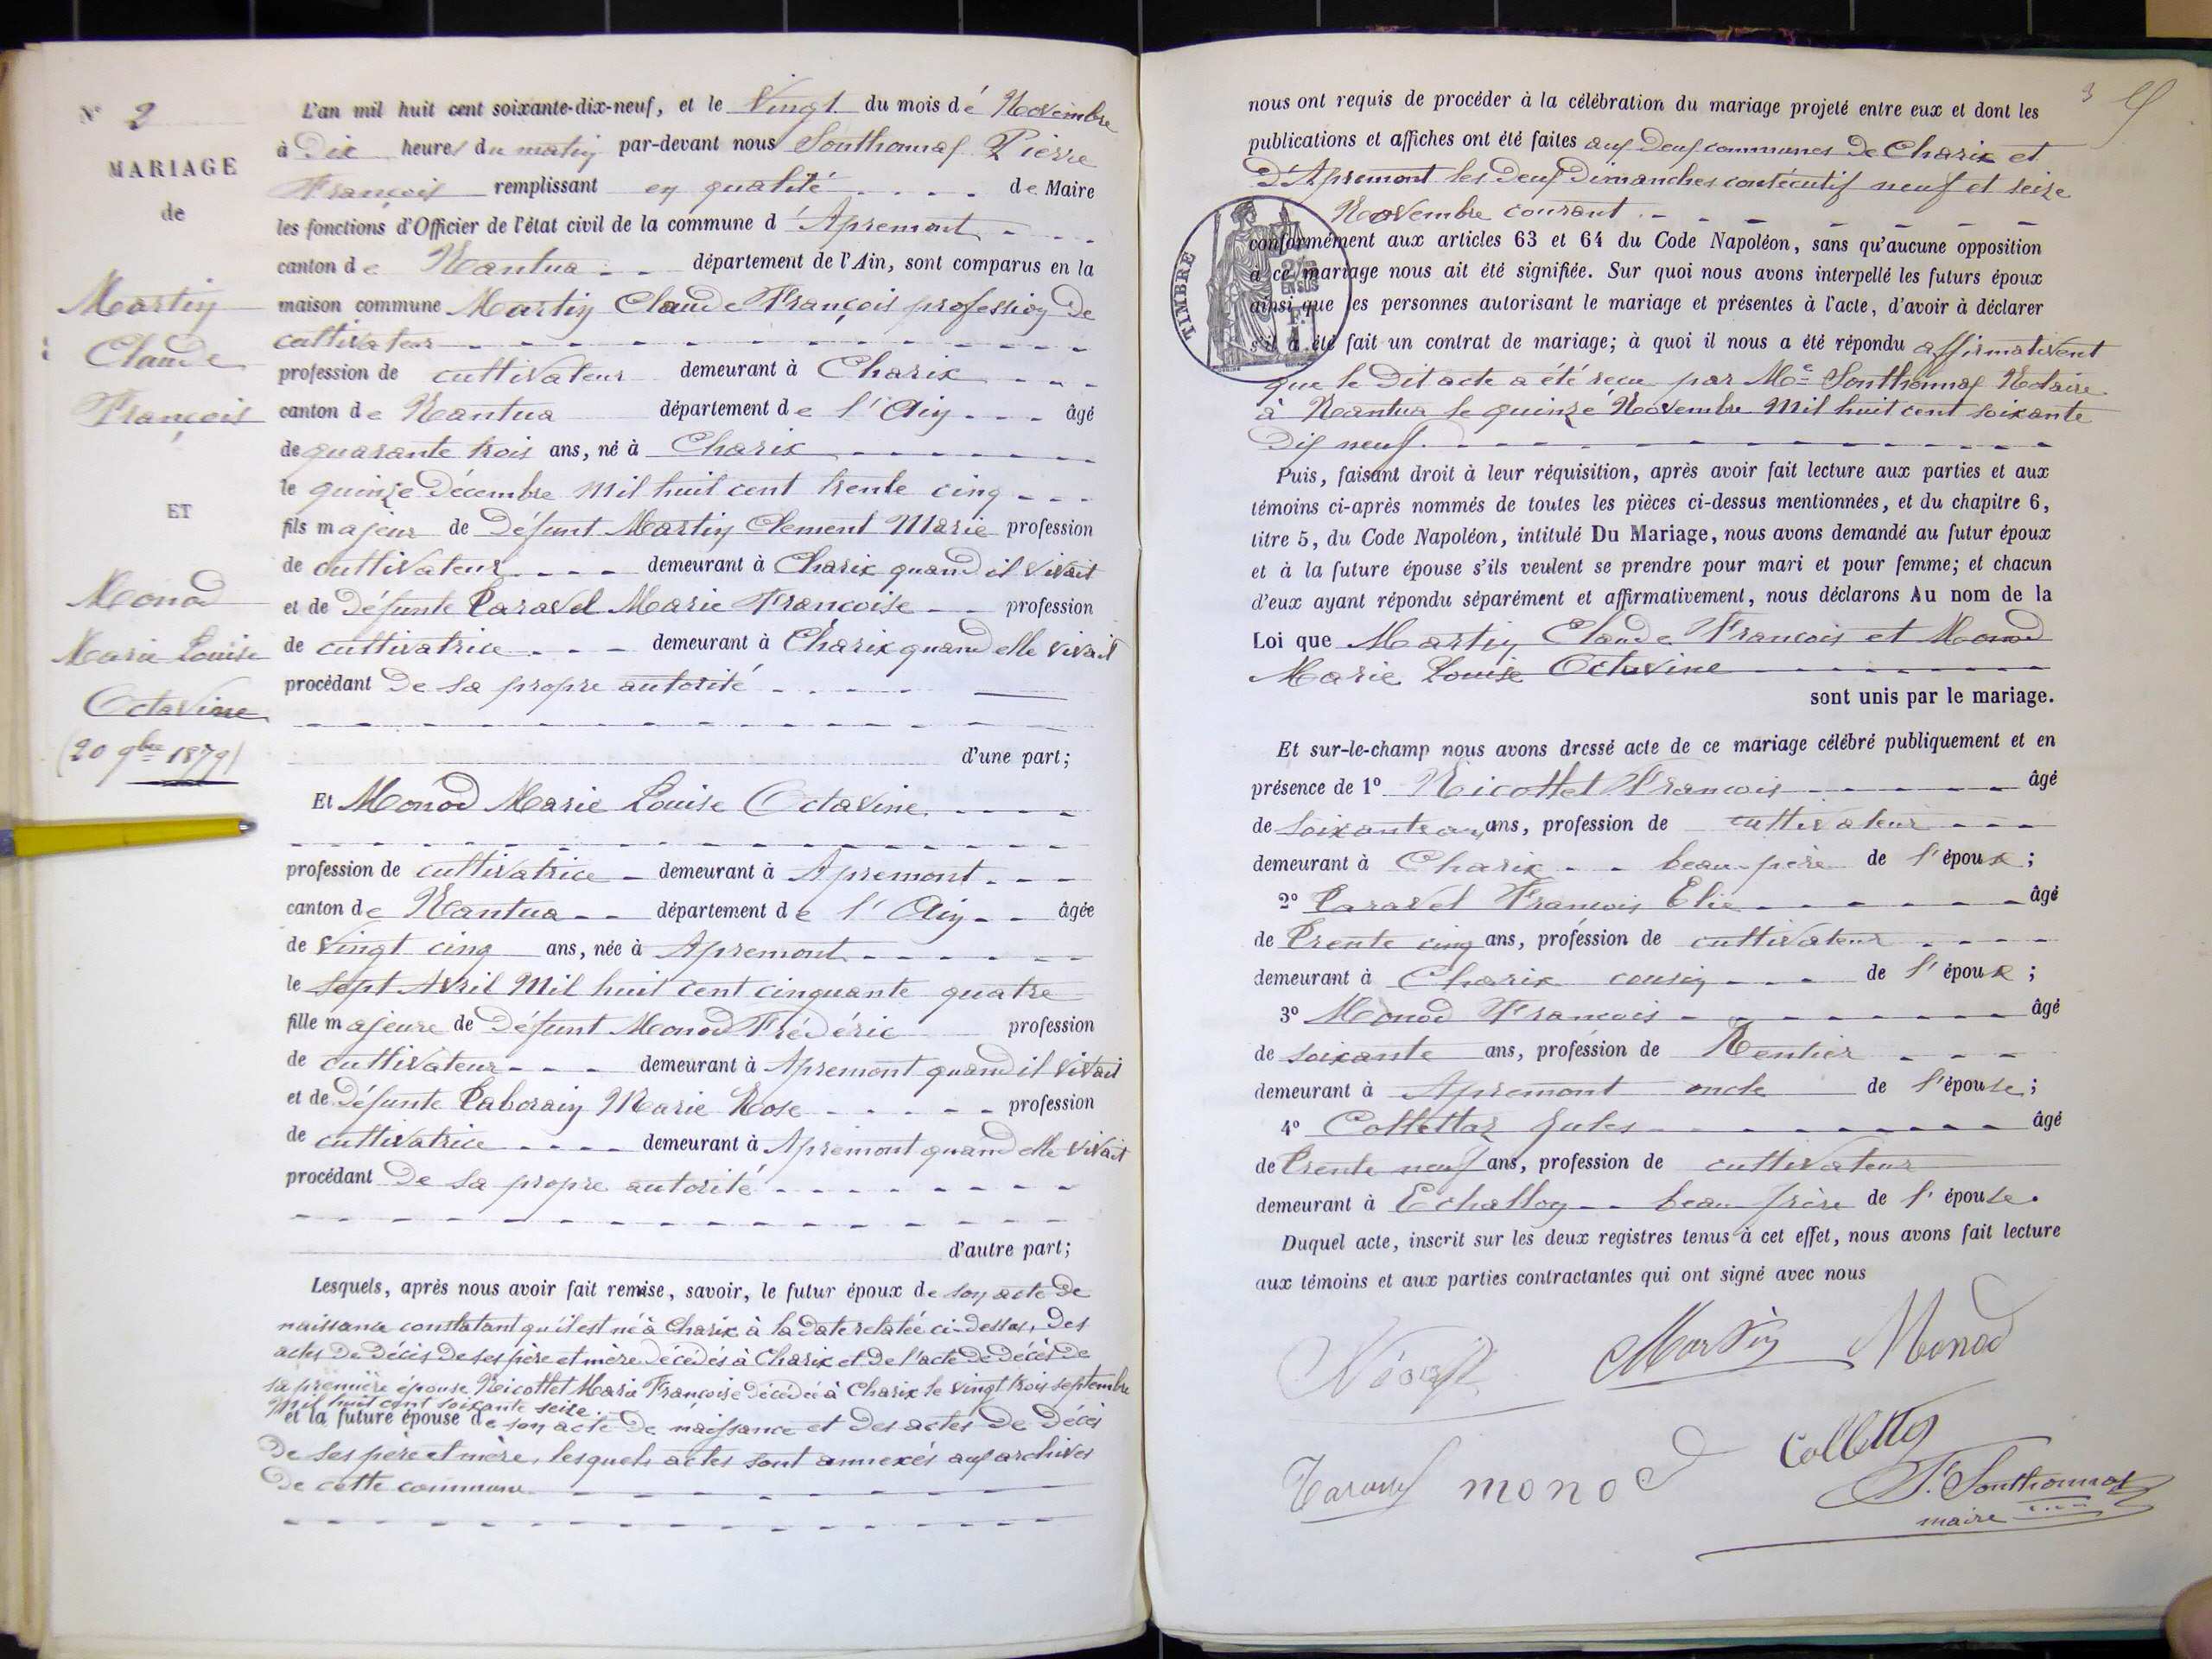 N° 2
MARIAGE
de
Martin
Claude
François
ET
Monod
Marie Louise
Octavine
(20 9bre 1879)
L'an mil huit cent soixante-dix-neuf, et le Vingt du mois de Novembre
à Dix heures du matin par-devant nous Sonthonnax Pierre
François remplissant en qualité de Maire
les fonctions d'Officier de l'état civil de la commune d'Apremont
canton de Nantua département de l'Ain, sont comparus en la
maison commune Martin Claude François profession de
cultivateur
profession de cultivateur demeurant à Charix
canton de Nantua département de l'Ain âgé
de quarante trois ans, né à Charix
le quinze Décembre Mil huit cent trente cinq
fils majeur de Défunt Martin Clement Marie profession
de cultivateur demeurant à Charix quand il vivait
et de Défunte Paravel Marie Françoise profession
de cultivatrice demeurant à Charix quand elle vivait
procédant De sa propre autorité
d'une part;
Et Monod Marie Louise Octavine
profession de cultivatrice demeurant à Apremont
canton de Nantua département de l'Ain âgée
de vingt cinq ans, née à Apremont
le sept Avril Mil huit cent cinquante quatre
fille majeure de Défunt Monod Frédéric profession
de cultivateur demeurant à Apremont quand il vivait
et de Défunte Taborain Marie Rose profession
de cultivatrice demeurant à Apremont quand elle vivait
procédant De sa propre autorité
d'autre part;
Lesquels, après nous avoir fait remise, savoir, le futur époux de son acte de
naissance constatant qu'il est né à Charix à la date relatée ci-dessus, Des
actes De Décès De ses père et mère Décédés à Charix et De l'acte De Décès De
sa première épouse Nicollet Marie Françoise Décédée à Charix le vingt trois septembre
mil huit cent soixante seize.
et la future épouse de son acte De naissance et Des actes De Décès
De ses père et mère, lesquels actes sont annexés aux archives
De cette commune
3
nous ont requis de procéder à la célébration du mariage projeté entre eux et dont les
publications et affiches ont été faites aux Deux communes De Charix et
D'Apremont les Deux Dimanches consécutif neuf et seize
Novembre courant
TIMBRE
conformément aux articles 63 et 64 du Code Napoléon, sans qu'aucune opposition
à ce mariage nous ait été signifiée. Sur quoi nous avons interpellé les futurs époux
ainsi que les personnes autorisant le mariage et présentes à l'acte, d'avoir à déclarer
s'il a été fait un contrat de mariage; à quoi il nous a été répondu affirmativent
que le Dit acte a été reçu par Me Sonthonnax Notaire
à Nantua le quinze Novembre Mil huit cent soixante
Dix neuf.
Puis, faisant droit à leur réquisition, après avoir fait lecture aux parties et aux
témoins ci-après nommés de toutes les pièces ci-dessus mentionnées, et du chapitre 6,
titre 5, du Code Napoléon, intitulé Du Mariage, nous avons demandé au futur époux
et à la future épouse s'ils veulent se prendre pour mari et pour femme; et chacun
d'eux ayant répondu séparément et affirmativement, nous déclarons Au nom de la
Loi que Martin Claude François et Monod
Marie Louise Octavine
sont unis par le mariage.
Et sur-le-champ nous avons dressé acte de ce mariage célébré publiquement et en
présence de 1° Nicollet François âgé
de soixante ans, profession de cultivateur
demeurant à Charix beau-père de l'époux;
2° Paravel François Elie âgé
de Trente cinq ans, profession de cultivateur
demeurant à Charix cousin de l'époux;
3° Monod François âgé
de soixante ans, profession de Rentier
demeurant à Apremont oncle de l'épouse;
4° Collettaz Jules âgé
de Trente neuf ans, profession de cultivateur
demeurant à Echallon beau frère de l'épouse.
Duquel acte, inscrit sur les deux registres tenus à cet effet, nous avons fait lecture
aux témoins et aux parties contractantes qui ont signé avec nous
Martin Monod
monod
F. Sonthonnax
maire